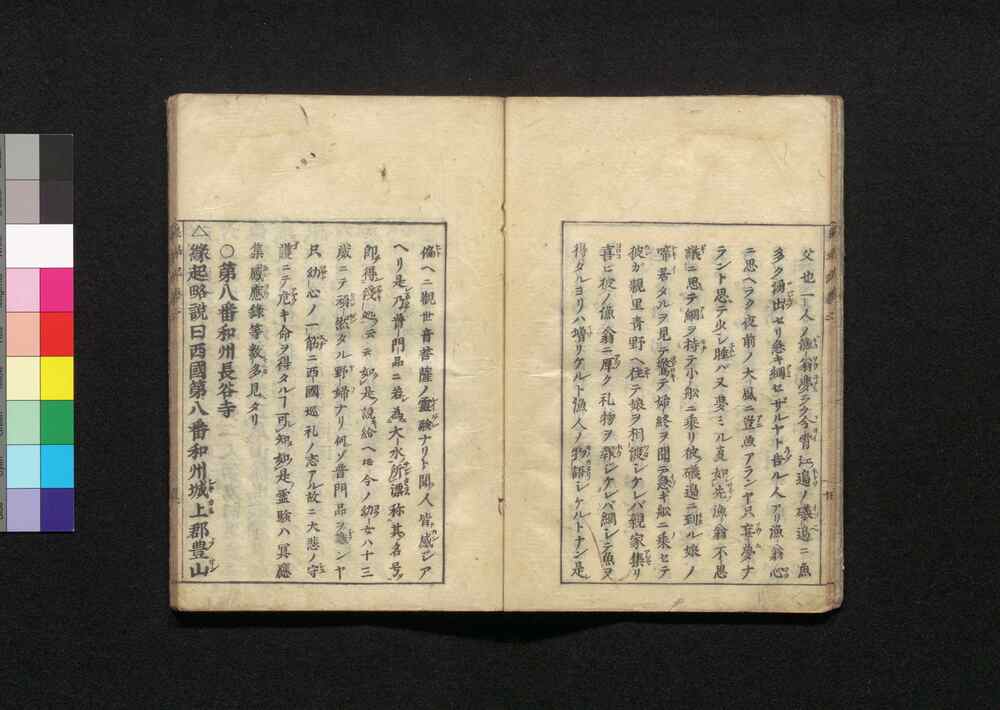 父也二一人ノ漁翁夢ラク今宵江邉ノ礒邉ニ魚
多ク涌出セリ急キ網セザルヤト告ル人アリ漁翁心
ニ思ヘラク夜前ノ大風ニ豈魚アランヤ只妄夢ナ
ラント思テ少シ睡バ又夢ミル亙如先漁翁不思
議ニ思テ網ヲ持テ小舩ニ乗リ彼礒邉ニ到ル娘ノ
啼居タルヲ見テ驚テ始終ヲ聞テ急キ舩ニ乗セテ
彼ガ親里青野ヘ往テ娘ヲ相渡シケレバ親家集リ
喜ビ彼ノ漁翁ニ厚ク礼物ヲ報シケレバ網シテ魚ヲ
得タルヨリハ増リケルト漁人ノ物語シケルトナン是
偏ヘニ觀世音菩薩ノ靈験ナリト聞人皆感シア
ヘリ是乃普門品ニ若為大水所漂称其名号
即得浅処云云如是説給ヘ今ノ幼女ハ十三
歳ニテ頑然タル野婦ナリ何ゾ普門品ヲ讀ンヤ
只幼心ノ一筋ニ西國巡礼ノ志アル故ニ大悲ノ守
護ニテ危キ命ヲ得タルヿ可知如是霊験ハ冥應
集感應録等数多見タリ
○第八番和州長谷寺
△縁起略説曰西國第八番和州城上郡豊山